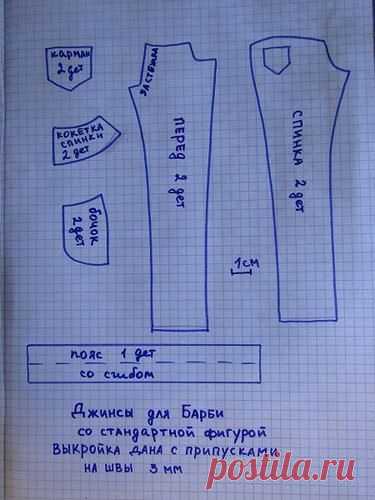 карман
2 дет
застёжка
перед 2 дет
спинка 2 дет
кокетка
спинки
2 дет
бочок
2 дет
1см
пояс 1 дет
со сгибом
Джинсы для Барби
со стандартной фигурой
выкройка дана с припусками
на швы 3 мм
postila.ru